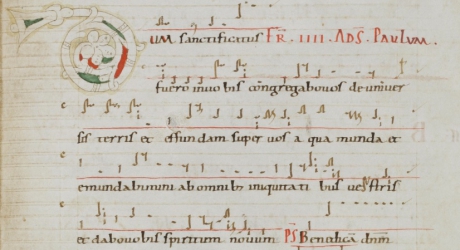 DUM sanctificatus FR. IIII. ADS. PAULUM.
fuero inuobis congregabouos deuniuer
sis terris et effundam super uos aqua munda et
emundabimini abomnib; iniquitati bus uestris
et dabouobis spiritum nouum PS Benedica dnm